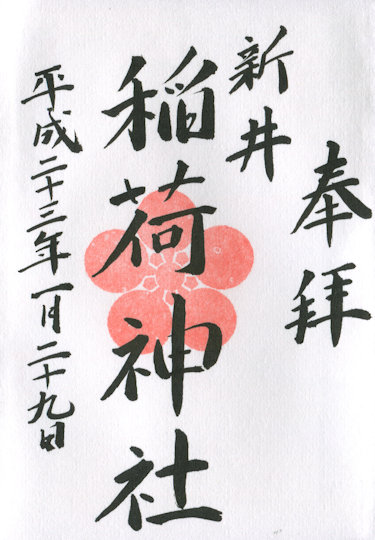 奉拝
新井
稲荷神社
平成二十三年一月二十九日